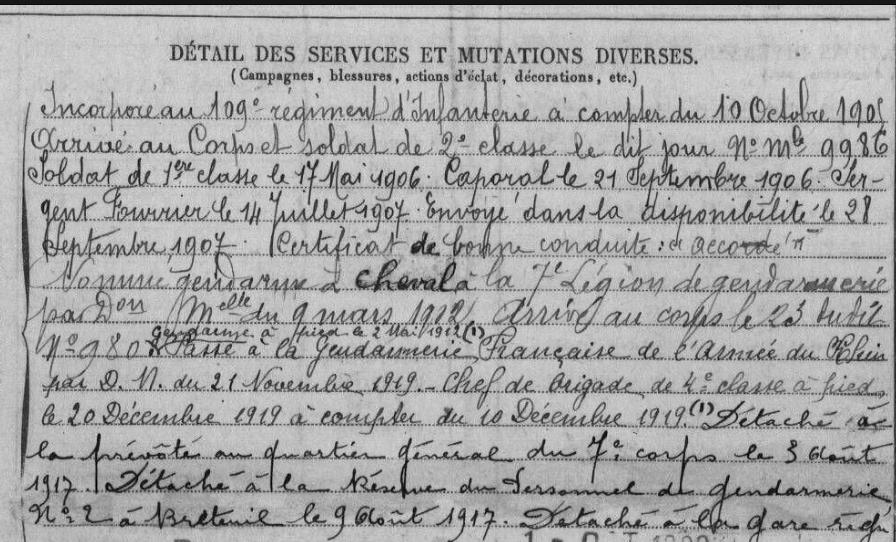 DÉTAIL DES SERVICES ET MUTATIONS DIVERSES.
(Campagnes, blessures, actions d'éclat, décorations, etc.)
Incorporé au 109e régiment d'Infanterie à compter du 10 Octobre 190
Arrivé au Corps et soldat de 2e classe le dit jour No Mle 9986
Soldat de 1ere classe le 17 Mai 1906. Caporal le 21 Septembre 1906. Ser-
gent Fourrier le 14 Juillet 1907. Envoyé dans la disponibilité le 28
Septembre 1907. Certificat de bonne conduite : "accordé"
Nommé gendarme à cheval à la 7e Légion de gendarmerie
par Don Melle du 9 mars 1912. Arrivé au corps le 23 dudit
gendarme à pied le 2 Mai 1912 (1)
No 980 Passé à la Gendarmerie Française de l'Armée du Rhin
par D. M. du 21 Novembre 1919. - Chef de brigade de 4e classe à pied
le 20 Décembre 1919 à compter du 10 Décembre 1919. (1) Détaché à
la prévôté au quartier général du 7e corps le 3 Août
1917. Détaché à la Réserve du Personnel de gendarmerie
No 2 à Breteuil le 9 Août 1917. Détaché à la gare régu